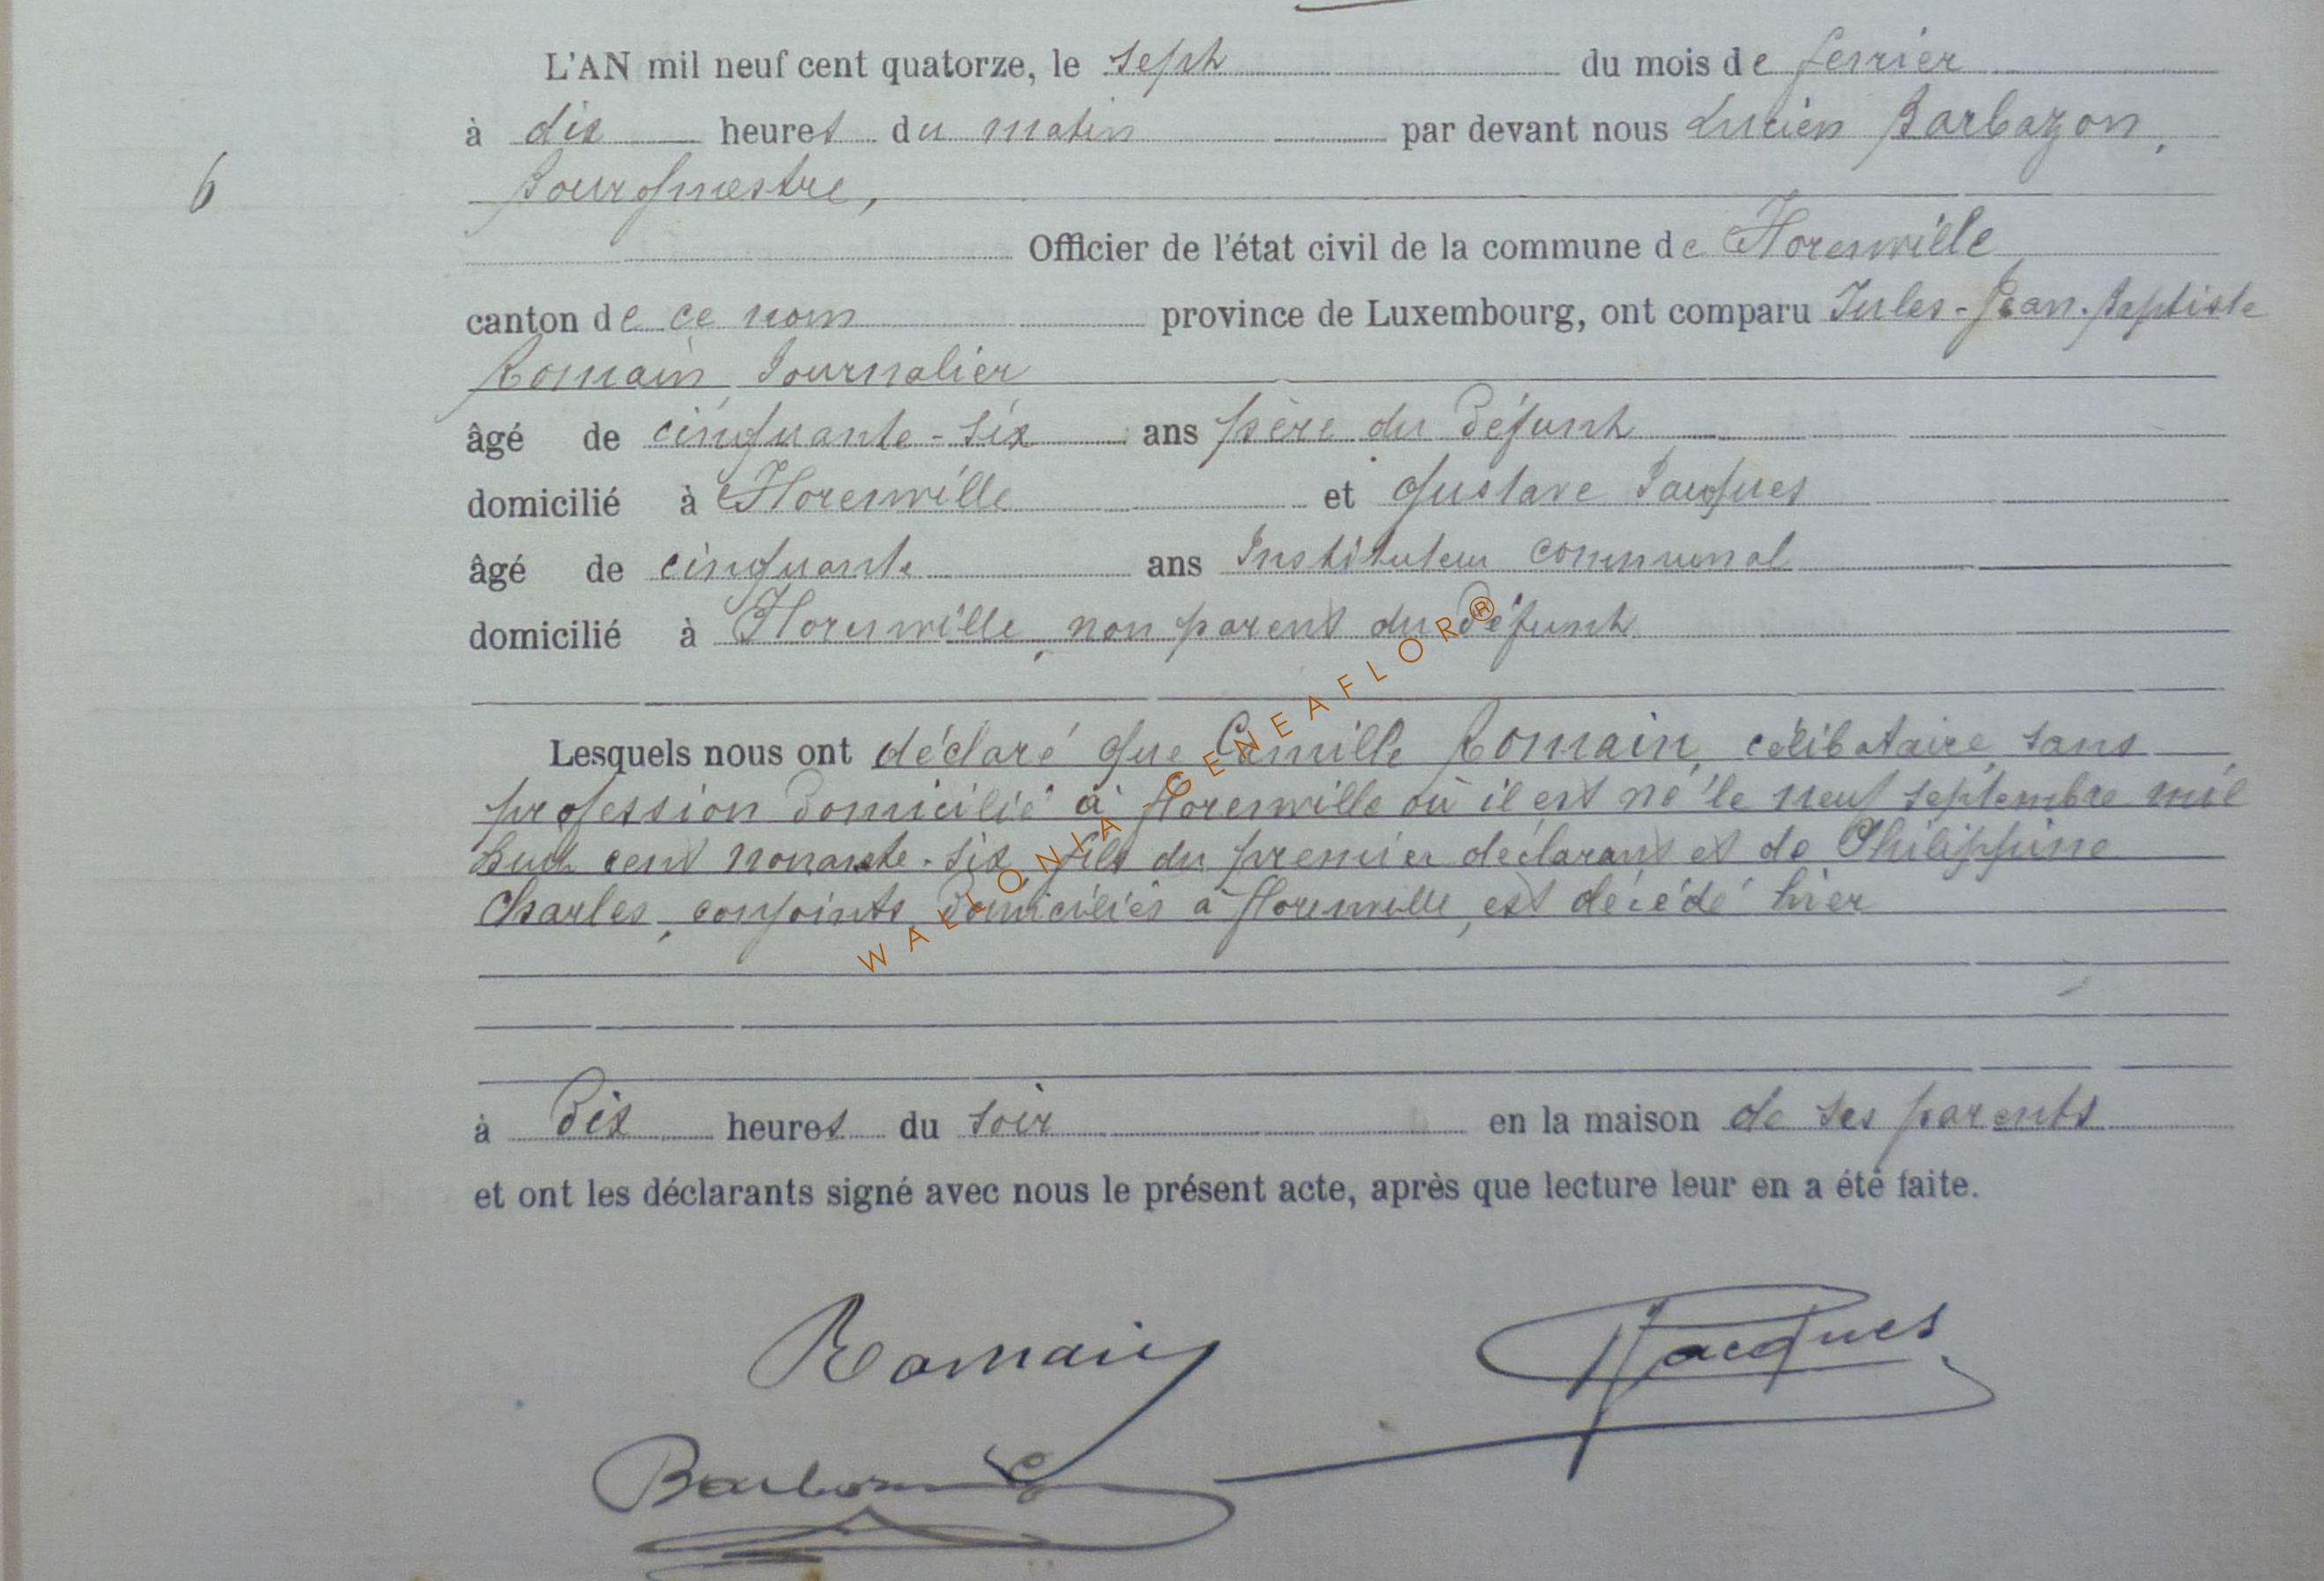 L'AN mil neuf cent quatorze, le sept du mois de fevrier
à dix heures du matin par devant nous Lucien Barbazon,
6
Bourgmestre,
Officier de l'état civil de la commune de Florenville
canton de ce nom province de Luxembourg, ont comparu Jules-Jean-Baptiste
Romain Journalier
âgé de cinquante-six ans père du défunt
domicilié à Florenville et Gustave Jacques
âgé de cinquante ans Instituteur communal
domicilié à Florenville, non parent du défunt
Lesquels nous ont déclaré que Camille Romain, célibataire, sans
profession domicilié à Florenville où il est né le neuf septembre mil
huit cent nonante-six, fils du premier déclarant et de Philippine
Charles, conjoints, domiciliés à Florenville, est décédé hier
à Dix heures du soir en la maison de ses parents
et ont les déclarants signé avec nous le présent acte, après que lecture leur en a été faite.
Romain
Jacques
Barbazon
WALLONIA-GENEAFLOR®